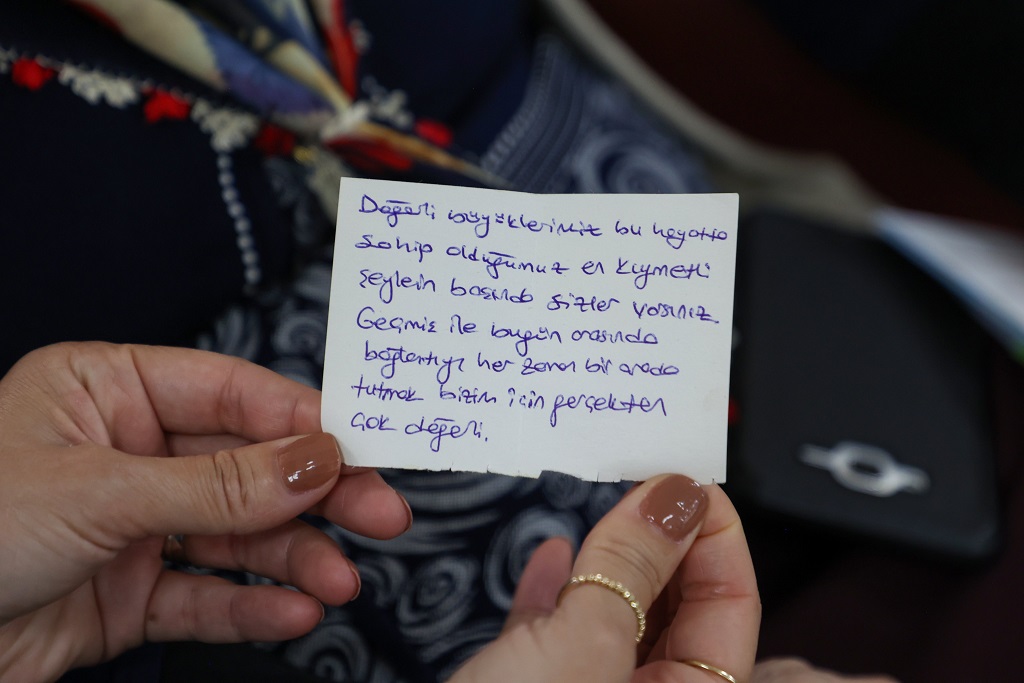 Değerli büyüklerimiz bu hayatta
sahip olduğumuz en kıymetli
şeylein başında sizler varsınız.
Geçmiş ile bugün arasında
bağlantıyı her zaman bir arada
tutmak bizim için gerçekten
çok değerli.